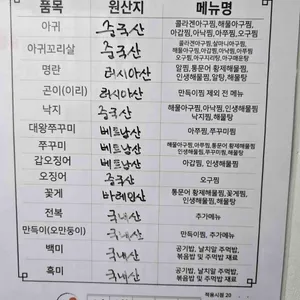 품목 원산지 메뉴명
아귀 중국산 콜라겐아구찜,해물아구찜,
아갑찜,아낙찜,아쭈찜,오구찜
아귀꼬리살 중국산
명란 러시아산 알찜,통문어 황제해물찜,
인생해물찜,알탕,해물탕
곤이(이리) 러시아산 만득이찜 제외 전 메뉴
낙지 중국산 해물아구찜,아낙찜,인생해물찜
낙지찜,해물탕
대왕쭈꾸미 베트남산 아쭈찜,쭈꾸미찜
쭈꾸미 베트남산 해물아구찜,아쭈찜,통문어 황제해물찜
인생해물찜,쭈꾸미찜,해물탕
갑오징어 베트남산 아갑찜,인생해물찜
오징어 중국산 오구찜
꽃게 바레인산 통문어 황제해물찜,꽃게찜,
인생해물찜,해물탕
전복 국내산 추가메뉴
만득이(오만둥이) 국내산 만득이찜, 추가메뉴
백미 국내산 공기밥, 날치알 주먹밥,
볶음밥 및 주먹밥 재료
흑미 국내산 공기밥, 날치알 주먹밥,
볶음밥 및 주먹밥 재료
적용시점 20